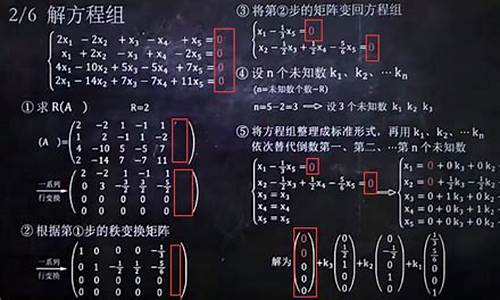 2/6 解方程组
2x₁ − 2x₂ + x₃ − x₄ + x₅ = 0
x₁ + 2x₂ − x₃ + x₄ − 2x₅ = 0
4x₁ − 10x₂ + 5x₃ − 5x₄ + 7x₅ = 0
2x₁ − 14x₂ + 7x₃ − 7x₄ + 11x₅ = 0
① 求 R(A ) R=2
(A )=
2 −2 1 −1 1
1 2 −1 1 −2
4 −10 5 −5 7
2 −14 7 −7 11
一系列
行变换
0 0 0 0 0
0 0 0 0 0
② 根据第①步的秩变换矩阵
一系列
行变换
1 0 0 0 −1/3
0 1 −1/2 1/2 −5/6
0 0 0 0 0
0 0 0 0 0
③ 将第②步的矩阵变回方程组
x₁ − 1/3x₅ = 0
x₂ − 1/2x₃ + 1/2x₄ − 5/6x₅ = 0
④ 设 n 个未知数 k₁、k₂、⋯ kₙ
(n=未知数个数−R)
n=5−2=3 → 设 3 个未知数 k₁ k₂ k₃
⑤ 将方程组整理成标准形式，再用 k₁、k₂、⋯ kₙ
依次替代倒数第一、第二、⋯第 n 个未知数
x₁ − 1/3x₅ = 0
x₂ − 1/2x₃ + 1/2x₄ − 5/6x₅ = 0
x₃ = x₃
x₄ = x₄
x₅ = x₅
x₁ = 0 + 0k₃ + 0k₂
x₂ = 0 + 1/2k₃ − 1/2k₂
x₃ = 0 + k₃ + 0k₂
x₄ = 0 + 0k₃ + 1k₂
x₅ = 0 + 0k₃ + 0k₂
解为